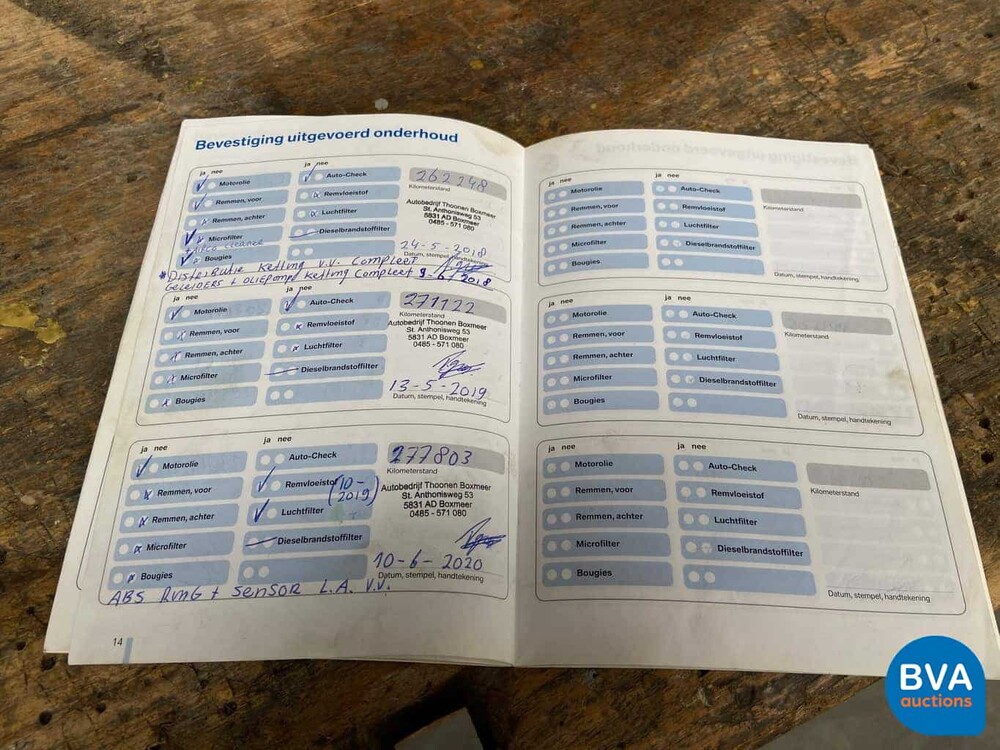 Bevestiging uitgevoerd onderhoud
ja nee
ja nee
Motorolie
Auto-Check
262248
Kilometerstand
Remmen, voor
Remvloeistof
Remmen, achter
Luchtfilter
Autobedrijf Thoonen Boxmeer
St. Anthonisweg 53
5831 AD Boxmeer
0485 - 571 080
Microfilter
Dieselbrandstoffilter
Bougies
24-5-2018
Datum, stempel, handtekening
* DISTRIBUTIE Ketting V.V. Compleet
Geleiders + OLIEPOMP Ketting Compleet 9-6-2018
ja nee
ja nee
Motorolie
Auto-Check
271122
Kilometerstand
Remmen, voor
Remvloeistof
Remmen, achter
Luchtfilter
Autobedrijf Thoonen Boxmeer
St. Anthonisweg 53
5831 AD Boxmeer
0485 - 571 080
Microfilter
Dieselbrandstoffilter
Bougies
13-5-2019
Datum, stempel, handtekening
ja nee
ja nee
Motorolie
Auto-Check
277803
Kilometerstand
Remmen, voor
Remvloeistof (10-2019)
Remmen, achter
Luchtfilter
Autobedrijf Thoonen Boxmeer
St. Anthonisweg 53
5831 AD Boxmeer
0485 - 571 080
Microfilter
Dieselbrandstoffilter
Bougies
10-6-2020
Datum, stempel, handtekening
ABS RING + SENSOR L.A. V.V.
14
ja nee
ja nee
Motorolie
Auto-Check
Kilometerstand
Remmen, voor
Remvloeistof
Remmen, achter
Luchtfilter
Microfilter
Dieselbrandstoffilter
Bougies
Datum, stempel, handtekening
ja nee
ja nee
Motorolie
Auto-Check
Kilometerstand
Remmen, voor
Remvloeistof
Remmen, achter
Luchtfilter
Microfilter
Dieselbrandstoffilter
Bougies
Datum, stempel, handtekening
ja nee
ja nee
Motorolie
Auto-Check
Kilometerstand
Remmen, voor
Remvloeistof
Remmen, achter
Luchtfilter
Microfilter
Dieselbrandstoffilter
Bougies
Datum, stempel, handtekening
BVA
auctions